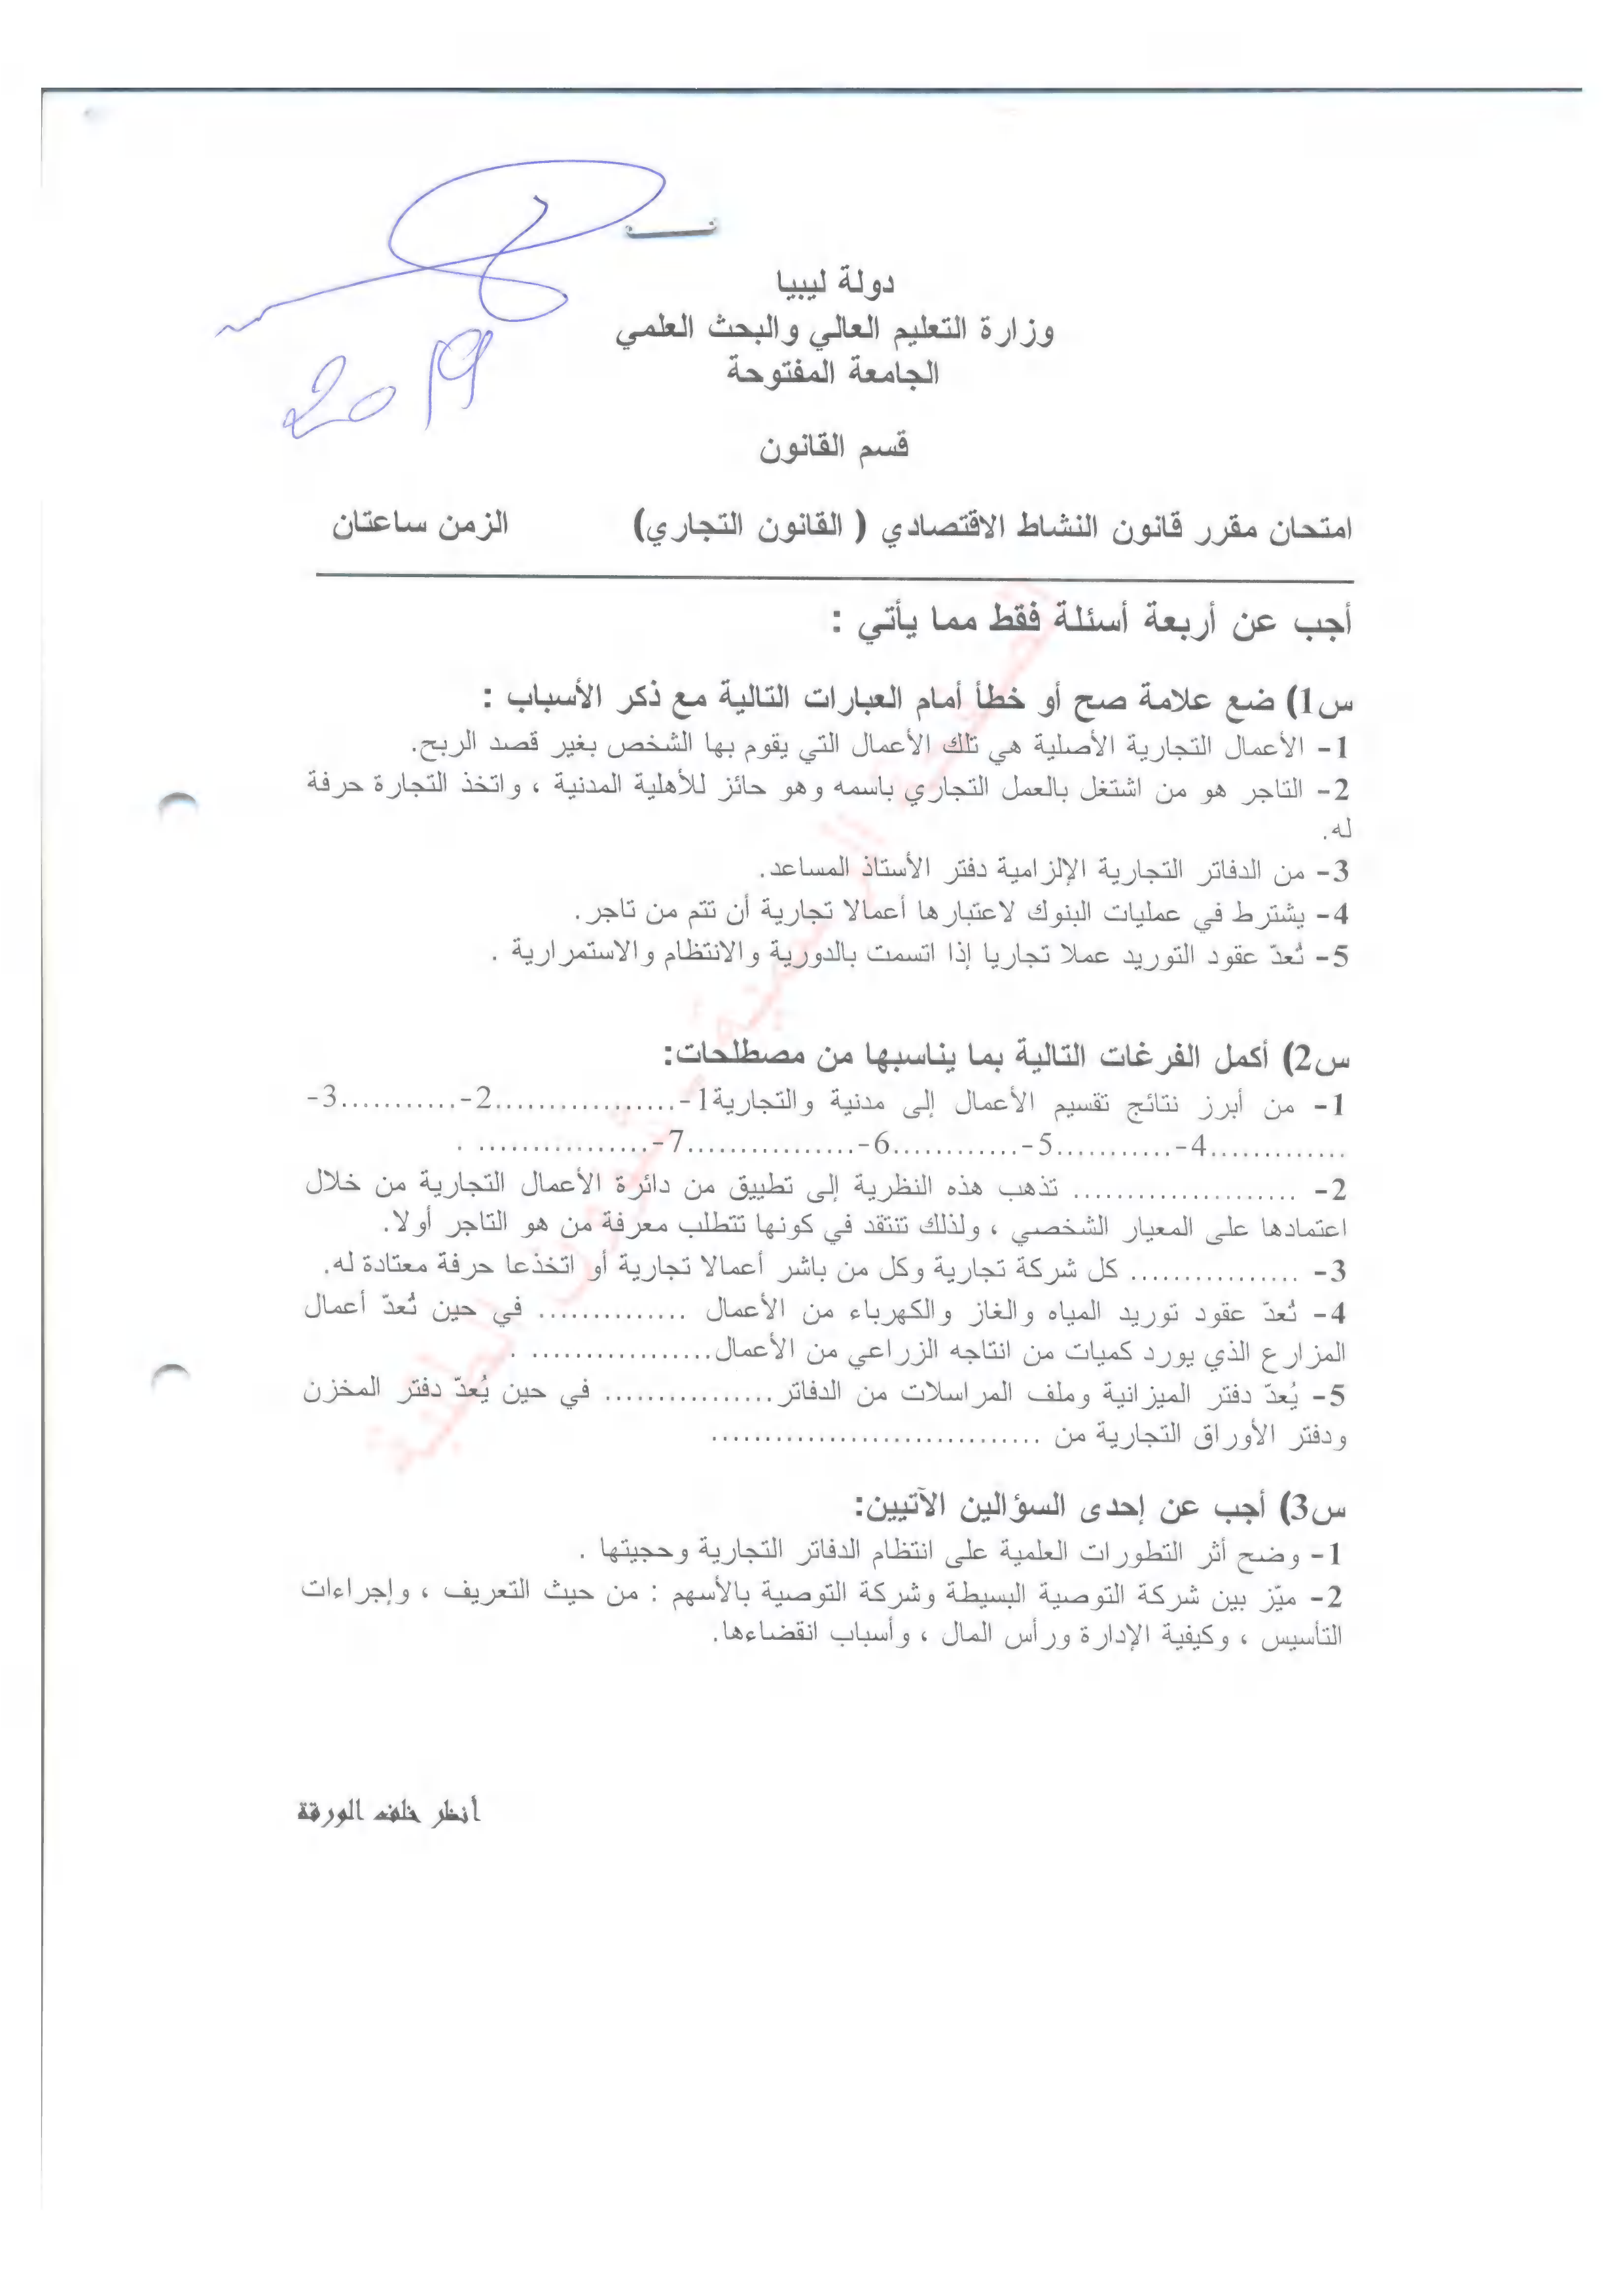 2019
دولة ليبيا
وزارة التعليم العالي والبحث العلمي
الجامعة المفتوحة
قسم القانون
امتحان مقرر قانون النشاط الاقتصادي ( القانون التجاري) الزمن ساعتان
أجب عن أربعة أسئلة فقط مما يأتي :
س1) ضع علامة صح أو خطأ أمام العبارات التالية مع ذكر الأسباب :
1- الأعمال التجارية الأصلية هي تلك الأعمال التي يقوم بها الشخص بغير قصد الربح.
2- التاجر هو من اشتغل بالعمل التجاري باسمه وهو حائز للأهلية المدنية ، واتخذ التجارة حرفة
له.
3- من الدفاتر التجارية الإلزامية دفتر الأستاذ المساعد.
4- يشترط في عمليات البنوك لاعتبارها أعمالا تجارية أن تتم من تاجر.
5- تُعدّ عقود التوريد عملا تجاريا إذا اتسمت بالدورية والانتظام والاستمرارية .
س2) أكمل الفرغات التالية بما يناسبها من مصطلحات:
1- من أبرز نتائج تقسيم الأعمال إلى مدنية والتجارية1-.................2-...........3-
.............4-...........5-............6-................7-................ .
2- ..................... تذهب هذه النظرية إلى تطبيق من دائرة الأعمال التجارية من خلال
اعتمادها على المعيار الشخصي ، ولذلك تنتقد في كونها تتطلب معرفة من هو التاجر أولا.
3- ................ كل شركة تجارية وكل من باشر أعمالا تجارية أو اتخذعا حرفة معتادة له.
4- تُعدّ عقود توريد المياه والغاز والكهرباء من الأعمال .............. في حين تُعدّ أعمال
المزارع الذي يورد كميات من انتاجه الزراعي من الأعمال................. .
5- يُعدّ دفتر الميزانية وملف المراسلات من الدفاتر................ في حين يُعدّ دفتر المخزن
ودفتر الأوراق التجارية من ...............................
س3) أجب عن إحدى السؤالين الآتيين:
1- وضح أثر التطورات العلمية على انتظام الدفاتر التجارية وحجيتها .
2- ميّز بين شركة التوصية البسيطة وشركة التوصية بالأسهم : من حيث التعريف ، وإجراءات
التأسيس ، وكيفية الإدارة ورأس المال ، وأسباب انقضاءها.
أنظر خلف الورقة